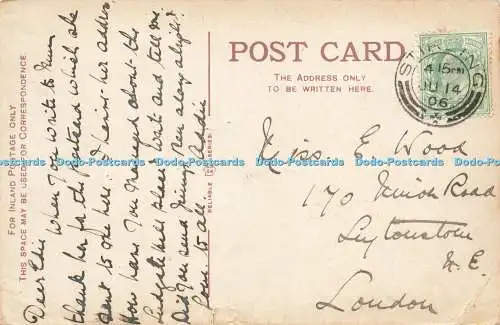 POST CARD.
THE ADDRESS ONLY
TO BE WRITTEN HERE.
FOR INLAND POSTAGE ONLY
THIS SPACE MAY BE USED FOR CORRESPONDENCE.
RELIABLE SERIES.
STIRLING
4 15 PM
JU 14
06
Dear Edie When you write to Mum
thank her for the postcard which she
sent to me here. I haven't her address
How have you managed about the
Ludgate Hill place? Write and tell me.
Did you send Jimmy's pen along alright?
Love to all
Miss E Wood
170 Road
Leytonstone
N.E.
London
Dodo-Postcards Dodo-Postcards Dodo-Postcards Dodo-Postcards Dodo-Postcards